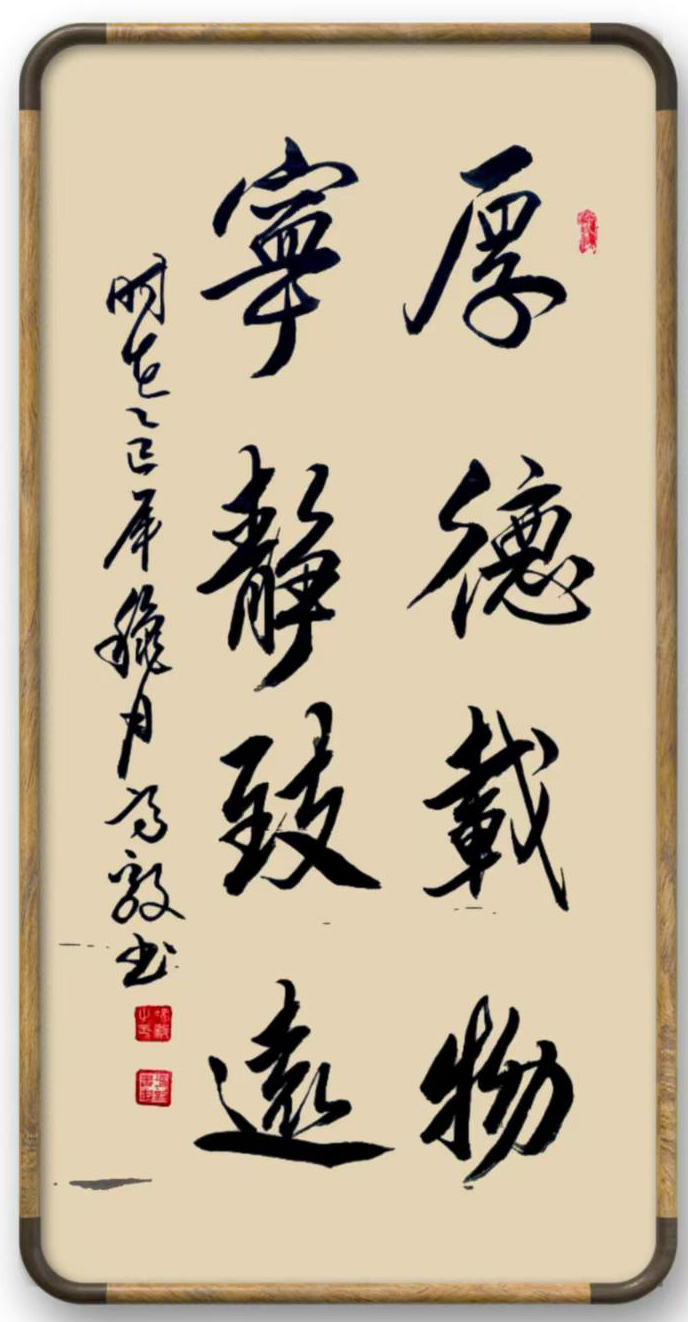 厚德載物
寧靜致遠
時在乙巳年臘月高敬書